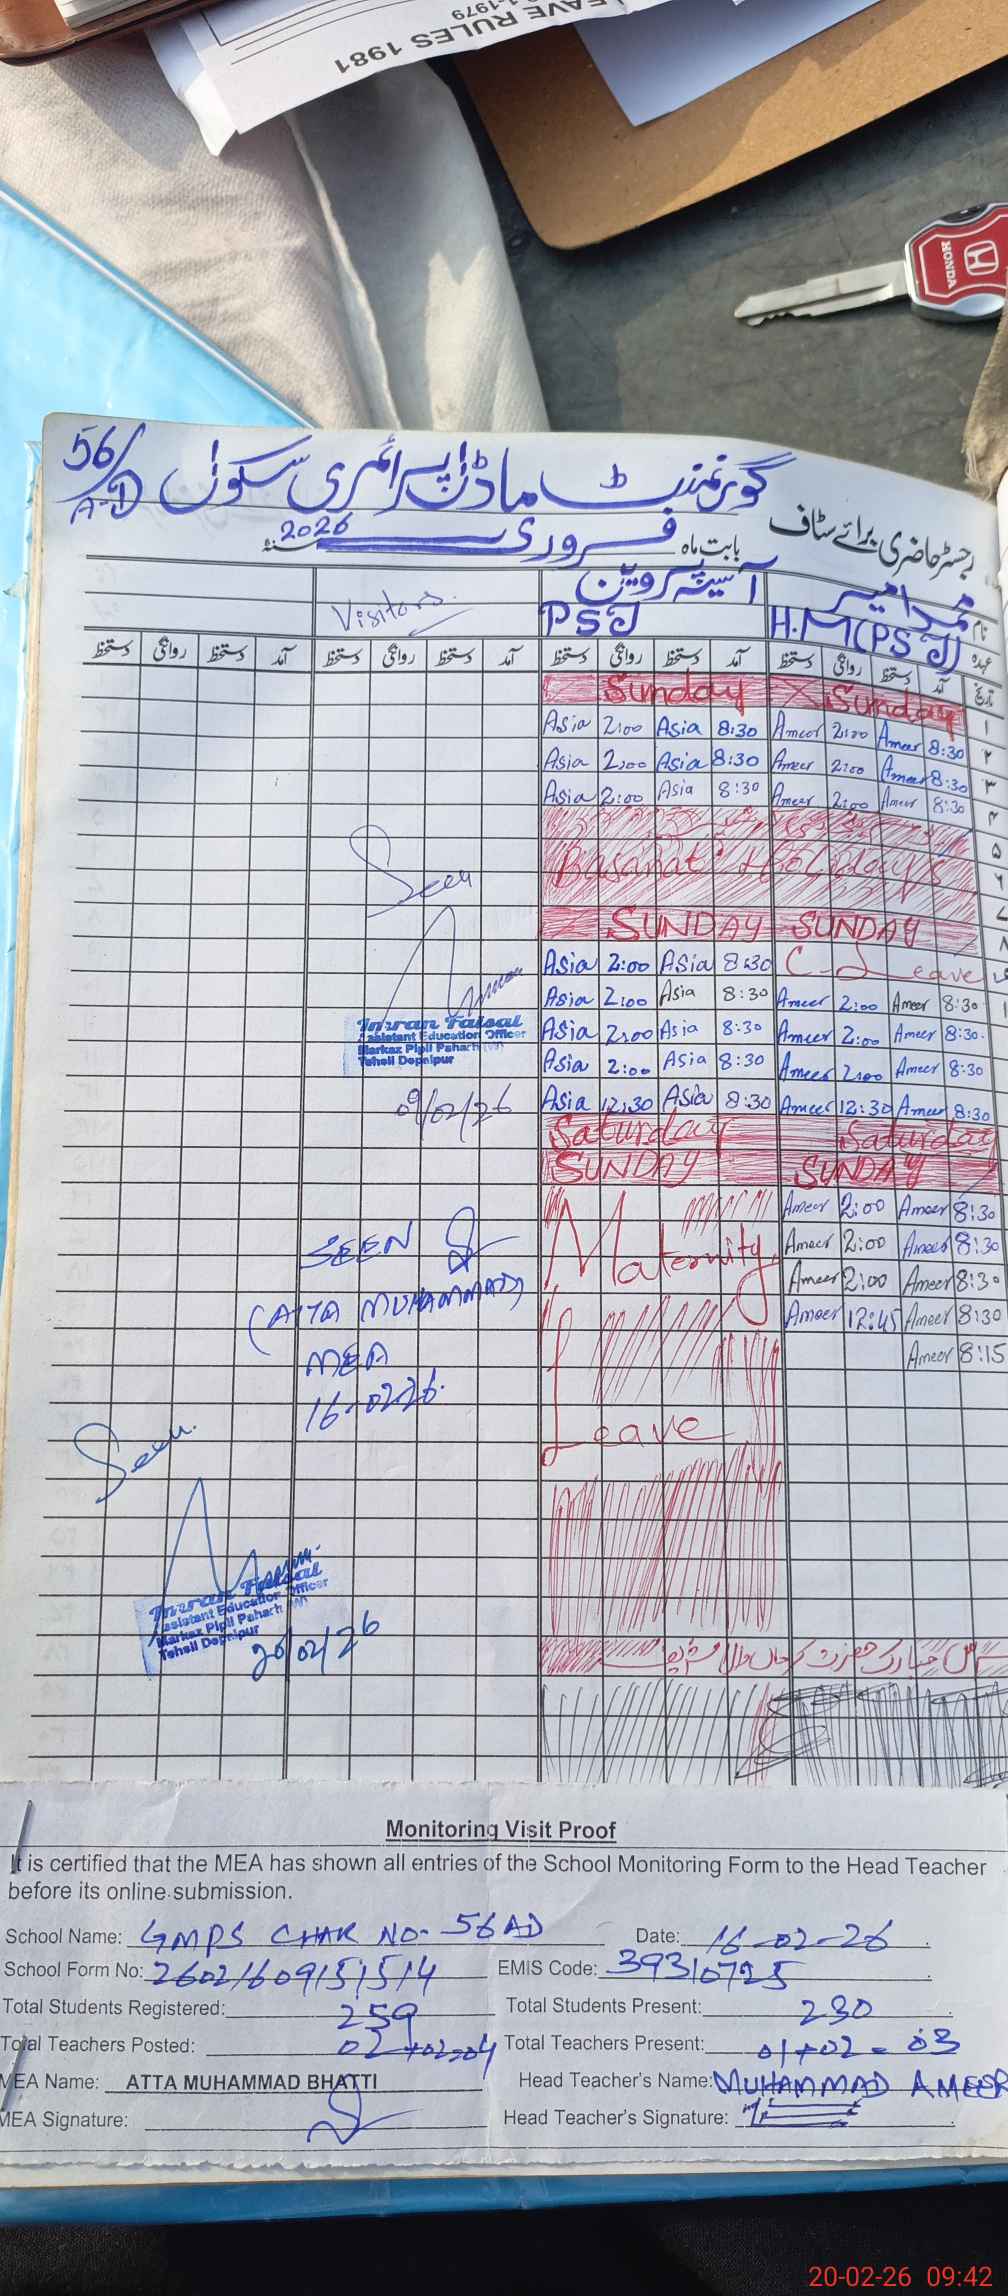 LEAVE RULES 1981
1-1979
HONDA
56/A-D گورنمنٹ ماڈل پرائمری سکول
رجسٹر حاضری برائے سٹاف بابت ماہ فروری 2026
نام محمد امیر آسیہ پروین Visitors.
عہدہ H.M(PST) PST
تاریخ آمد دستخط روانگی دستخط آمد دستخط روانگی دستخط آمد دستخط روانگی دستخط آمد دستخط روانگی دستخط
Sunday Sunday
Asia 2:00 Asia 8:30 Ameer 2:00 Ameer 8:30
Asia 2:00 Asia 8:30 Ameer 2:00 Ameer 8:30
Asia 2:00 Asia 8:30 Ameer 2:00 Ameer 8:30
Basanat Holidays
SUNDAY SUNDAY
Asia 2:00 Asia 8:30 C-Leave
Asia 2:00 Asia 8:30 Ameer 2:00 Ameer 8:30
Asia 2:00 Asia 8:30 Ameer 2:00 Ameer 8:30
Asia 2:00 Asia 8:30 Ameer 2:00 Ameer 8:30
Asia 12:30 Asia 8:30 Ameer 12:30 Ameer 8:30
Saturday Saturday
SUNDAY SUNDAY
Ameer 2:00 Ameer 8:30
Maternity Ameer 2:00 Ameer 8:30
Ameer 2:00 Ameer 8:30
Ameer 12:45 Ameer 8:30
Ameer 8:15
Leave
Seen
Imran Faisal
Assistant Education Officer
Markaz Pipli Paharh (W)
Tehsil Depalpur
09/02/26
SEEN
(ATTA MUHAMMAD)
MEA
16-02-26.
Seen
Imran Faisal
Assistant Education Officer
Markaz Pipli Paharh (W)
Tehsil Depalpur
20/02/26
Monitoring Visit Proof
It is certified that the MEA has shown all entries of the School Monitoring Form to the Head Teacher
before its online submission.
School Name: GMPS CHAK NO- 56AD Date: 16-02-26
School Form No: 26021609151514 EMIS Code: 39310725
Total Students Registered: 259 Total Students Present: 230
Total Teachers Posted: 02+02=04 Total Teachers Present: 01+02=03
MEA Name: ATTA MUHAMMAD BHATTI Head Teacher's Name: MUHAMMAD AMEER
MEA Signature: Head Teacher's Signature:
20-02-26 09:42